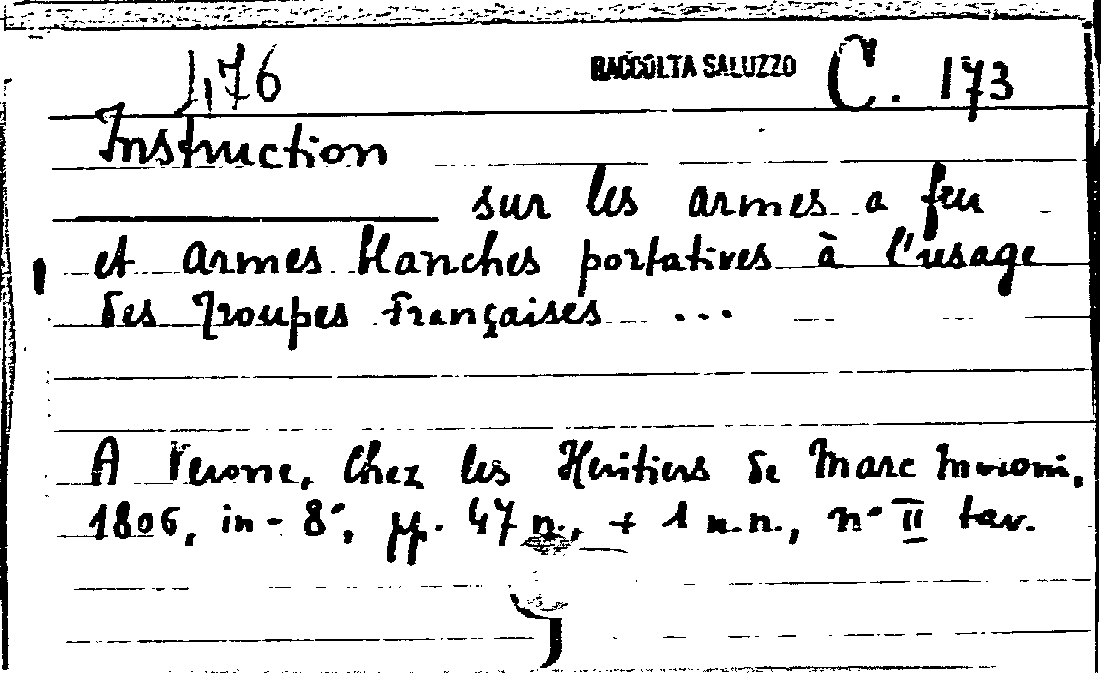 1,76 RACCOLTA SALUZZO C. 173
Instruction
sur les armes a feu
et armes blanches portatives à l'usage
des Troupes françaises ...
A Verone, Chez les Heritiers de Marc Moroni,
1806, in-8°, pp. 47 n., + 1 n.n., n° II tav.